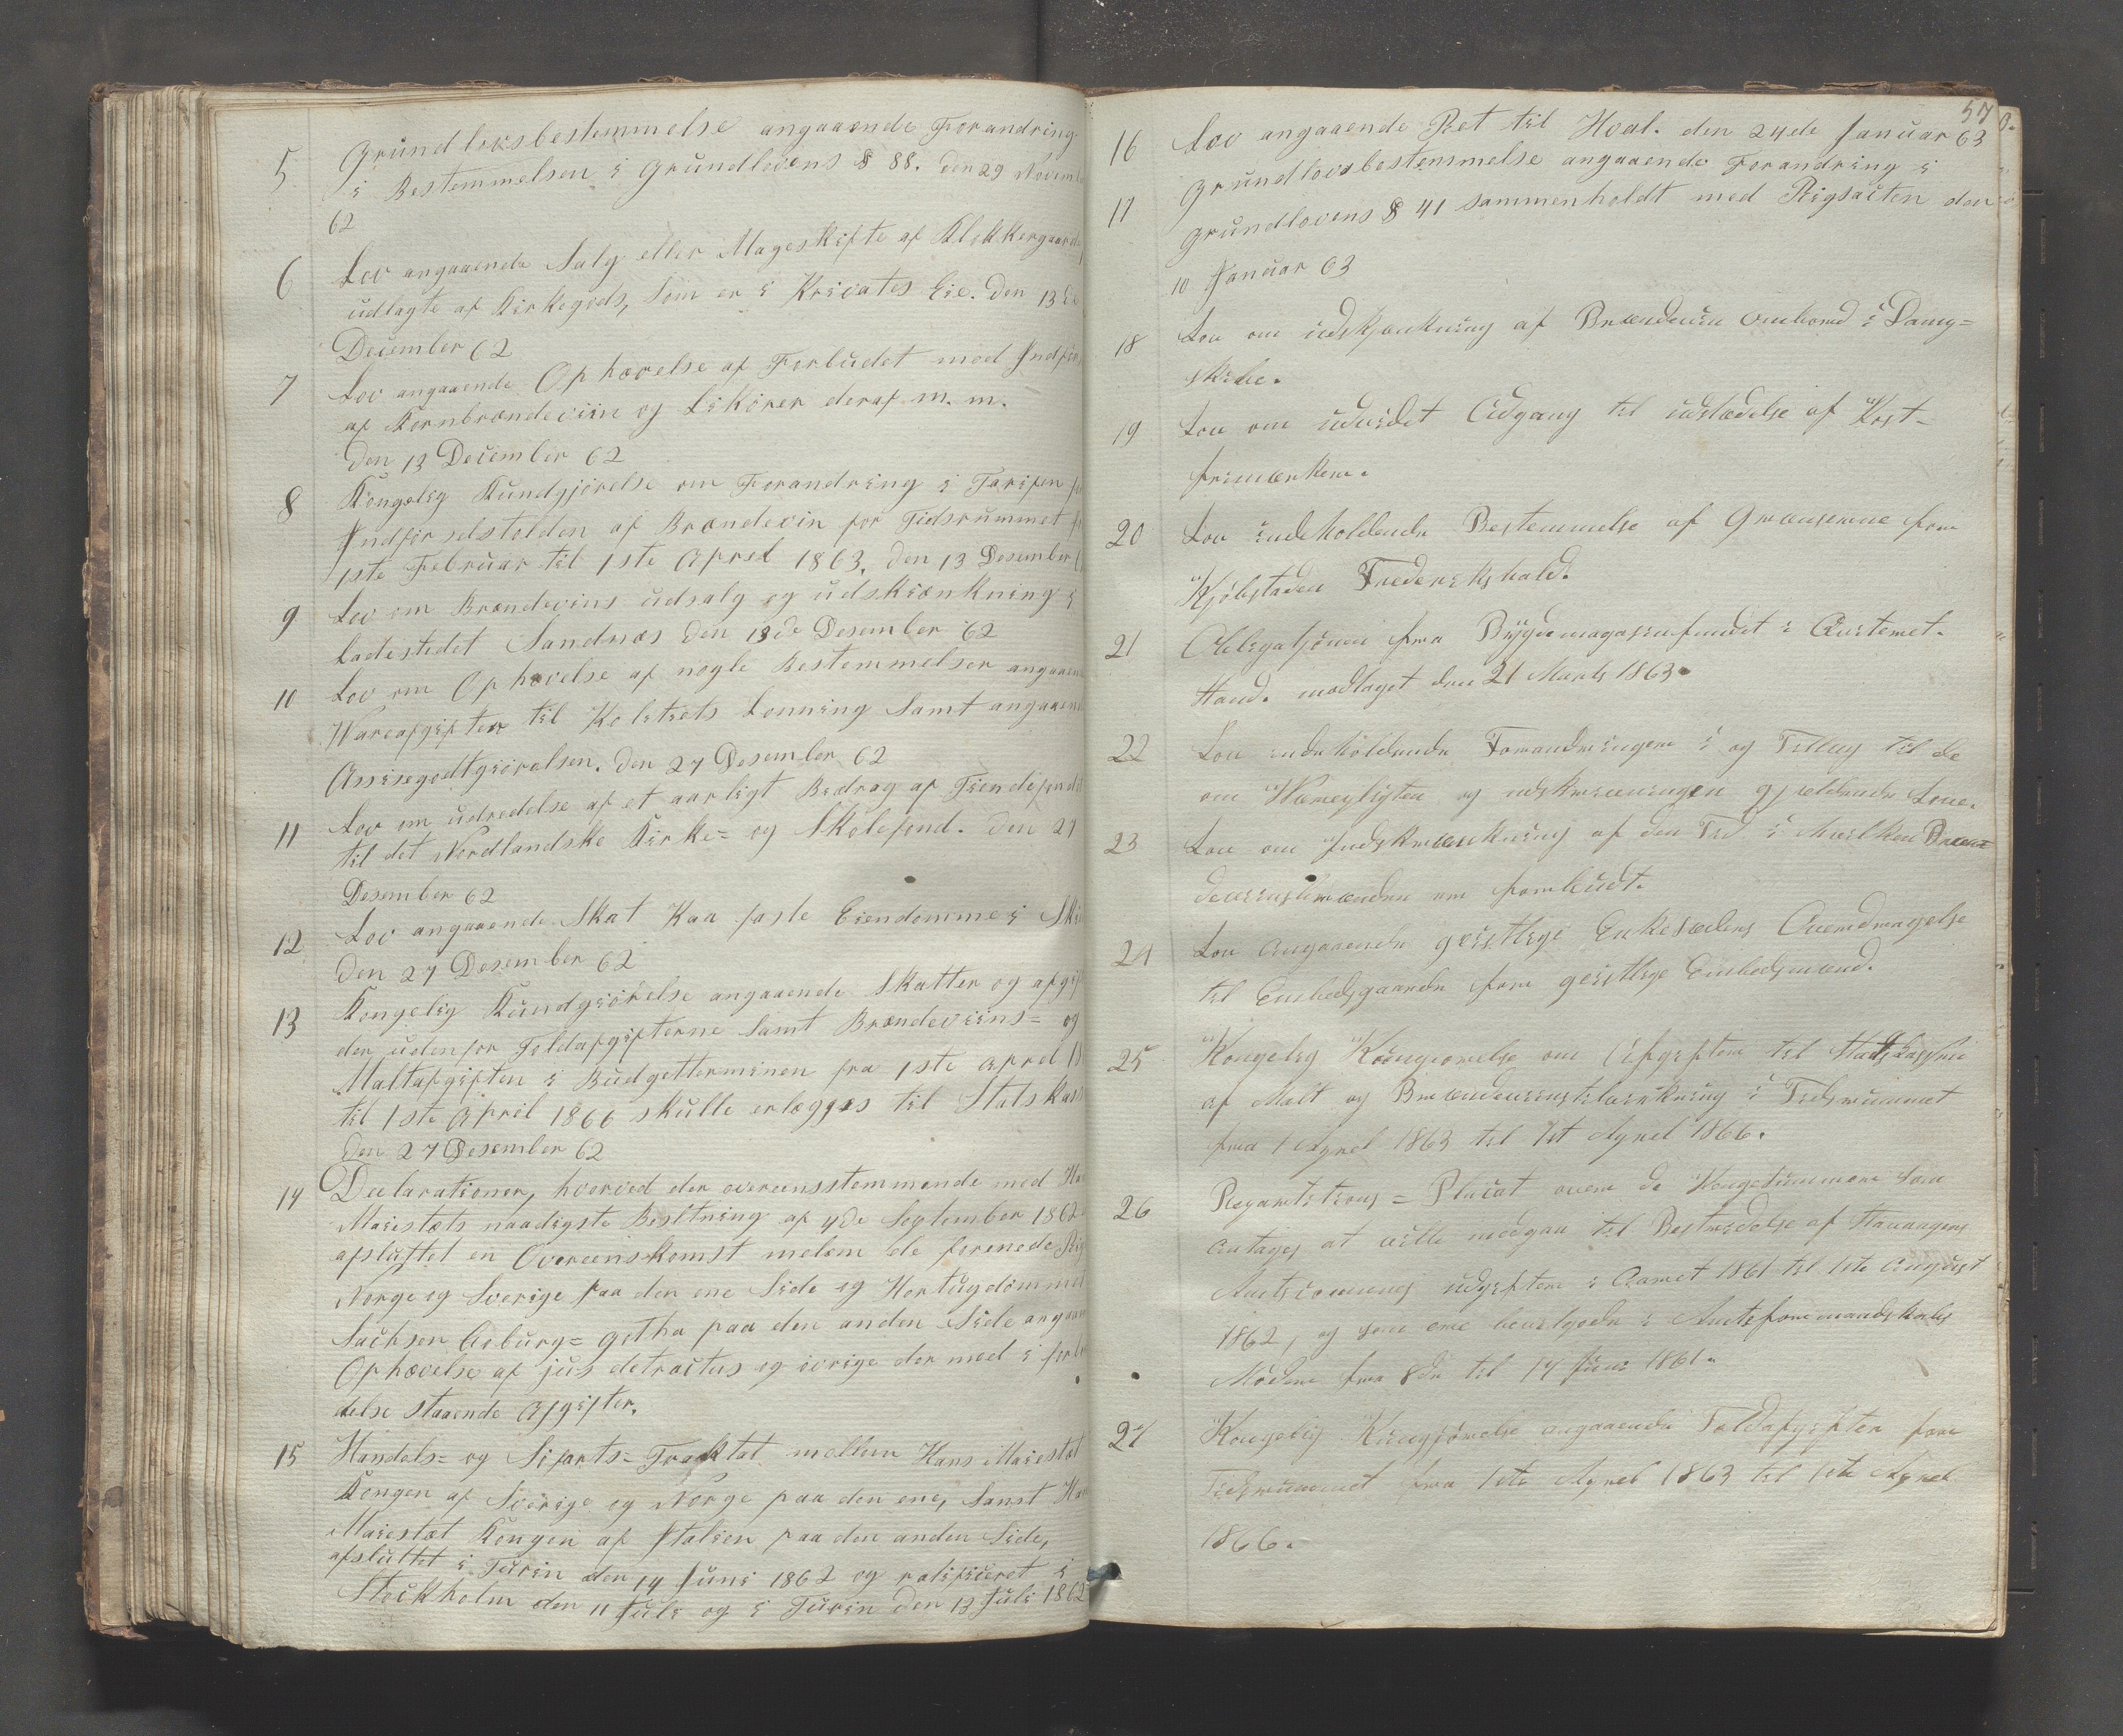 5 Grundlovsbestemmelse angaaende Forandring
i Bestemmelsen i Grundlovens § 88. den 29 Novemb
62
6 Lov angaaende Salg eller Mageskifte af Klokkergaarde
udlagte af Kirkegods, Som er i Privates Eie. Den 13de
December 62
7 Lov angaaende Ophævelse af Forbudet mod Indførs
af Kornbrændeviin og Likörer deraf m. m.
Den 13 December 62
8 Kongelig Kundgjörelse om Forandring i Tarifen
Indförselstolden af Brændevin for Tidsrummet
1ste Februar til 1ste Apreil 1863. den 13 Desember
9 Lov om Brændevins udsalg og udskiænkning i
Ladestedet Sandnæs Den 13de Desember 62
10 Lov om Ophævelse af nogle Bestemmelser angaaen
Vareafgifter til Politiets Lönning Samt angaaende
Assisegodtgiörelsen. Den 27 Desember 62
11 Lov om udredelse af et aarligt Bidrag af Tiendefondet
til det Nordlandske Kirke= og Skolefond. Den 27
Desember 62
12 Lov angaaende Skat Paa faste Eiendomme i Ski
den 27 Desember 62
13 Kongelig Kundgiörelse angaaende Skatter og afgif
der udenfor Toldafgifterne Samt Brændeviins= og
Maltafgiften i Budgetterminen fra 1ste April 18
til 1ste April 1866 skulle erlægges til Statskass
Den 27 Desember 62
14 Declarationer, hvorved der overeensstemmende med Ha
Maiestæts naadigste Beslutning af 4de September 1862
afsluttet en Overeenskomst mellem de forenede Rig
Norge og Sverige paa den ene Side og Hertugdömmet
Sachsen Coburg= Gotha paa den anden Side angaae
Ophævelse af jus detractus og övrige der med i forbi
delse staaende Afgifter.
15 Handels= og Siøfarts= Traktat mellem Hans Maiestæt
Kongen af Sverige og Norge paa den ene, Samt Ha
Maiestæt Kongen af Italien paa den anden Side,
afsluttet i Turin den 14 Juni 1862 og ratificeret i
Stockholm den 11 Juli og i Turin den 13 Juli 1862
57
16 Lov angaaende Ret til Hval. den 24de Januar 63
17 Grundlovsbestemmelse angaaende Forandring i
Grundlovens § 41 sammenholdt med Rigsacten den
10 Januar 63
18 Lov om udskjænkning af Brændeviin ombord i Damp=
skibe.
19 Lov om udvidet Adgang til udstædelse af Post=
frimærker.
20 Lov indeholdende Bestemmelse af Grændserne for
Kjöbstaden Frederikshald.
21 Obligatjonen fra Bygdemagasinfondet i
modtaget den 21 Marts 1863.
22 Lov indeholdende Forandringer i og Tillæg til de
om Værnepligten og udskrivningen gjældende Love.
23 Lov om Indskrænkning af den Tid i hvilken Bræn=
deviinsbrænden er forbudt.
24 Lov Angaaende geistlige Enkesæders Overdragelse
til Embedsgaarde for geistlige Embedsmænd.
25 Kongelig Kungiörelse om Afgiften til Statskassen
af Malt og Brændeviinstilvirkning i Tidsrummet
fra 1 April 1863 til 1st April 1866.
26 Reparti tions= Placat over de Pengesummer som
antages at ville medgaa til Bestridelse af Stavangers
Amtscommunes udgifter i Aaret 1861 til 1ste August
1862, og som ere bevilgede i Amtsformandskabs
Möderne fra 8de til 14 Juni 1861.
27 Kongelig Kungjörelse angaaende Toldafgifter for
Tidsrummet fra 1ste April 1863 til 1ste April
1866.